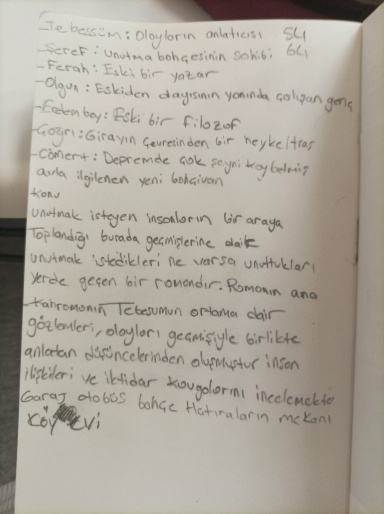 -Tebessüm: Olayların anlatıcısı 54
-Şeref: Unutma bahçesinin sahibi 64
-Ferah: Eski bir yazar
-Olgun: Eskiden dayısının yanında çalışan genç
-Erdem bey: Eski bir filozof
-Çağrı: Girayın çevresinden bir heykeltraş
-Cömert: Depremde çok şeyni kaybetmiş
avla ilgilenen yeni bahçivan
Konu
unutmak isteyen insanların bir araya
Toplandığı burada geçmişlerine dair
unutmak istedikleri ne varsa unuttukları
yerde geçen bir romandır. Romanın ana
kahramanın Tebesumun ortama dair
gözlemleri, olayları geçmişiyle birlikte
anlatan düşüncelerinden oluşmuştur insan
ilişkileri ve iktidar kavgalarını incelemekte
Garaj otobüs bahçe Hatıraların mekanı
Köy evi